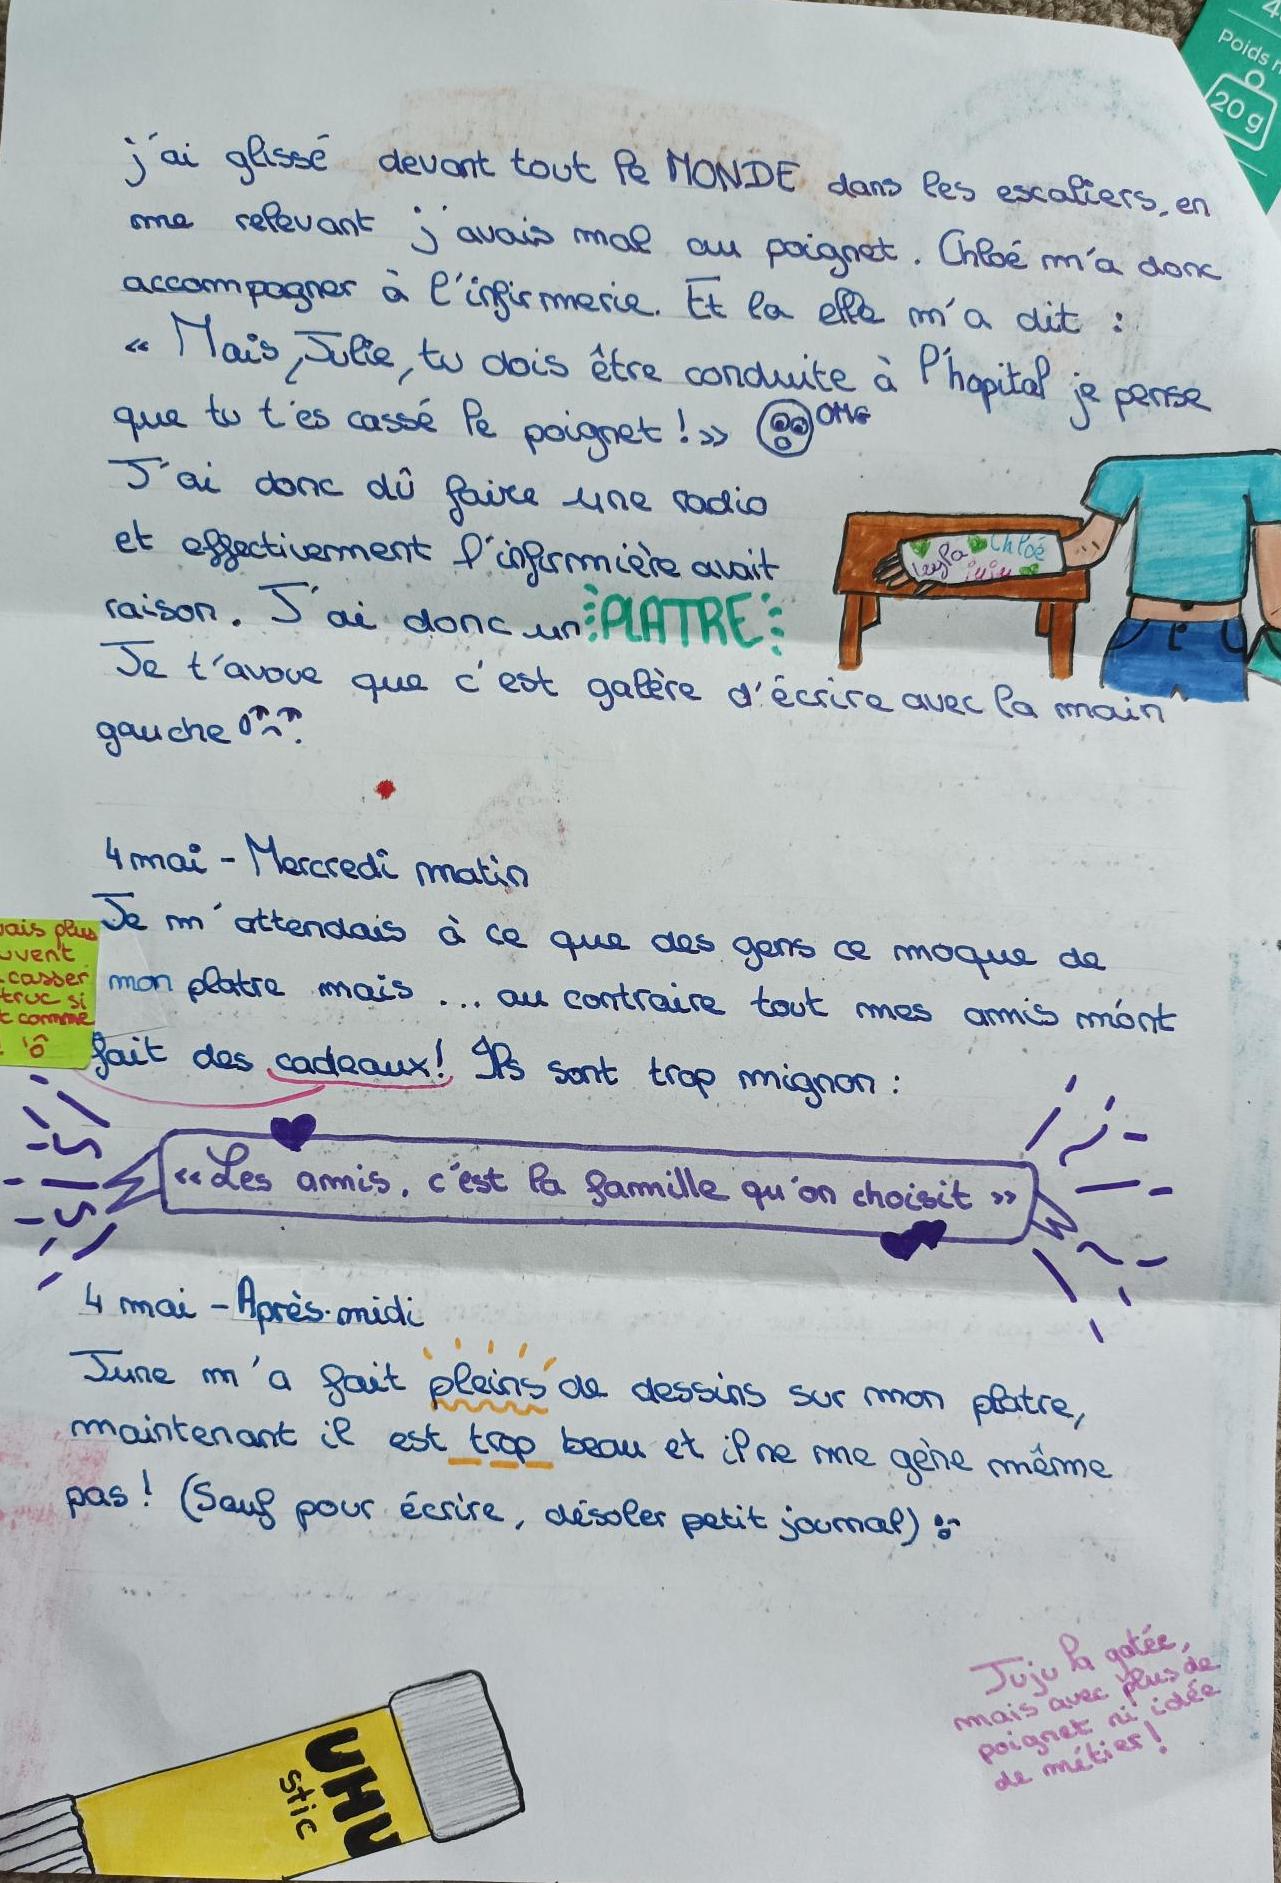 4
Poids n
20 g
j'ai glissé devant tout le MONDE dans les escaliers, en
me relevant j'avais mal au poignet. Chloé m'a donc
accompagner à l'infirmerie. Et la elle m'a dit :
« Mais, Julie, tu dois être conduite à l'hopital je pense
que tu t'es cassé le poignet ! » OMG
J'ai donc dû faire une radio
et effectivement l'infirmière avait
raison. J'ai donc un PLATRE
Chloé
Leyla
juju
Je t'avoue que c'est galère d'écrire avec la main
gauche
4 mai - Mercredi matin
Je m'attendais à ce que des gens ce moque de
mon platre mais ... au contraire tout mes amis m'ont
fait des cadeaux! Ils sont trop mignon :
vais plus
uvent
casser
truc si
t comme
!
« Les amis, c'est la famille qu'on choisit »
4 mai - Après-midi
June m'a fait pleins de dessins sur mon platre,
maintenant il est trop beau et il ne me gène même
pas ! (Sauf pour écrire, désoler petit journal)
Juju la gatée,
mais avec plus de
poignet ni idée
de métier!
UHU
stic